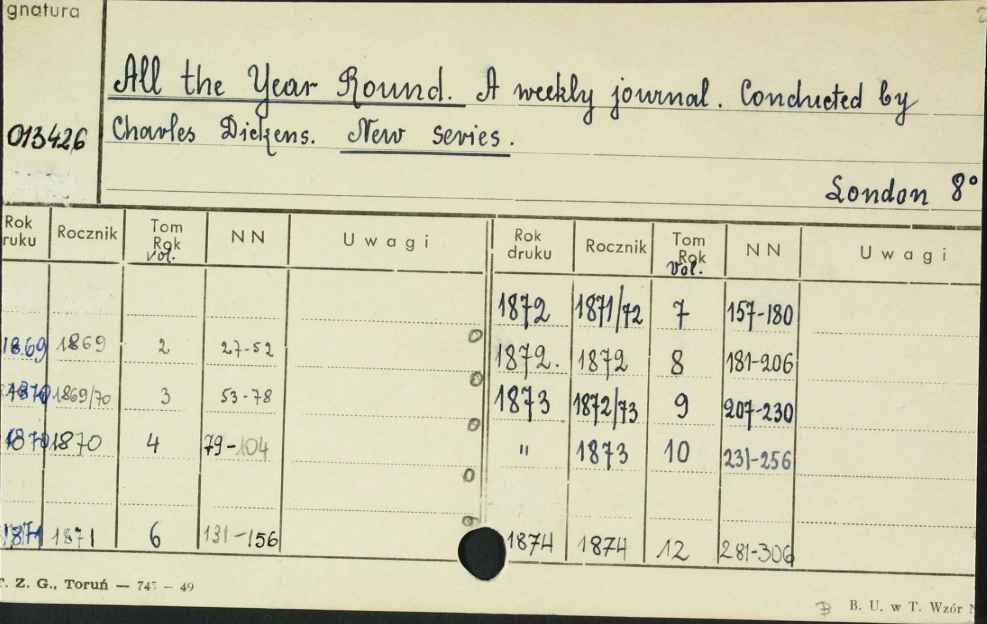 gnatura
All the Year Round. A weekly journal. Conducted by
013426 Charles Dickens. New series.
London 8°
Rok ruku Rocznik Tom Rok Vol. N N Uwagi Rok druku Rocznik Tom Rok Vol. N N Uwagi
1872 1871/72 7 157-180
1869 1869 2 27-52 1872. 1872 8 181-206
1870 1869/70 3 53-78 1873 1872/73 9 207-230
1870 1870 4 79-104 " 1873 10 231-256
1871 1871 6 131-156 1874 1874 12 281-306
T. Z. G., Toruń — 745 — 49
B. U. w T. Wzór